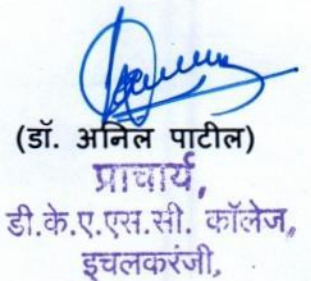 (डॉ. अनिल पाटील)
प्राचार्य,
डी.के.ए.एस.सी. कॉलेज,
इचलकरंजी,